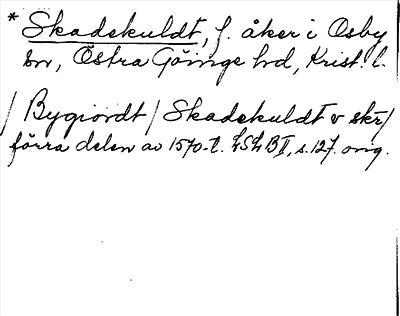 * Skadekuldt, f. åker i Osby
sn, Östra Göinge hd, Krist. l.
/ Bygiordt / Skadekuldt v skr/
förra delen av 1570-t. LSLB II, s. 127. orig.